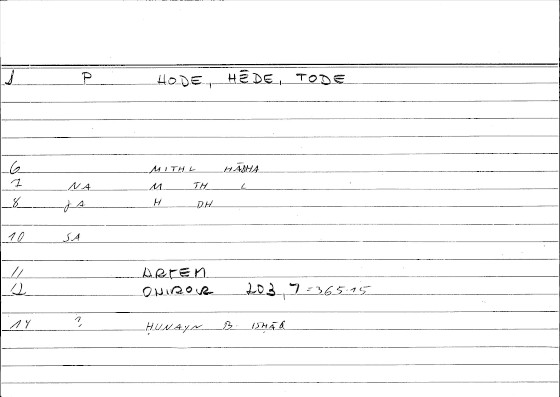 1 P HODE, HĒDE, TODE
6 MITHL HĀDHA
7 NA M TH L
8 JA H DH
10 SA
11 ARTEM
12 ONIROCR 203,7=365.15
14 ? ḤUNAYN B. ISḤĀQ